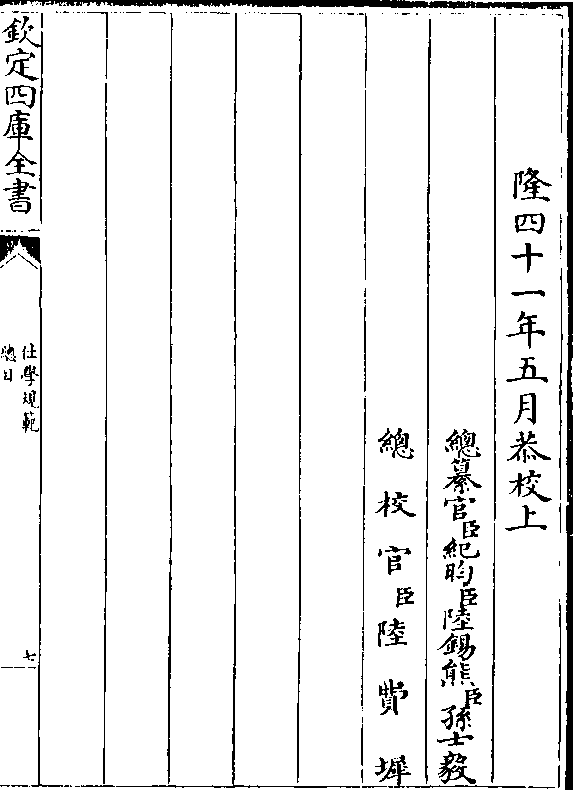 隆四十一年五月恭校上
總纂官臣紀昀臣陸錫熊臣孫士毅
總校官臣陸費墀
欽定四庫全書
仕學規範
總目
七